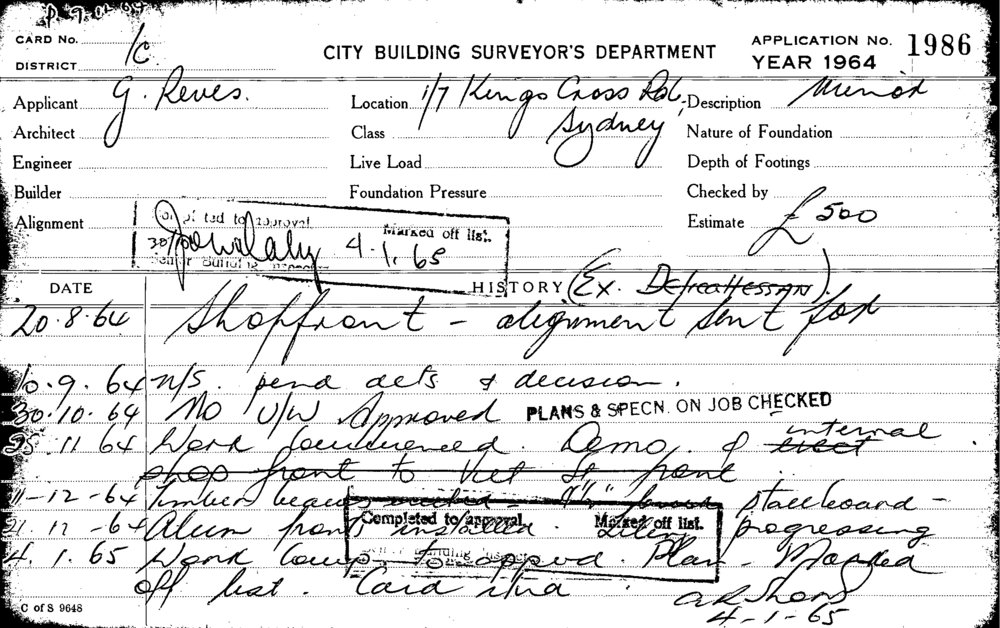 CARD No.
DISTRICT 1c
CITY BUILDING SURVEYOR'S DEPARTMENT
APPLICATION No. 1986
YEAR 1964
Applicant G. Reves.
Location 1/7 Kings Cross Rd,
Sydney
Description Minor
Architect
Class
Nature of Foundation
Engineer
Live Load
Depth of Footings
Builder
Foundation Pressure
Checked by
Alignment
Estimate £500
to approval Marked off list.
4.1.65
DATE
HISTORY (Ex.
20.8.64 Shopfront - alignment sent for
10.9.64 N/S. pend dets & decision.
30.10.64 No U/W Approved PLANS & SPECN. ON JOB CHECKED
25.11.64 Work commenced. Demo. of internal
shop front to Vict St front
11-12-64 Timber stallboard -
21.12-64 Alum front installed. progressing
Completed to approval. Marked off list.
4.1.65 Work comp. to apprvd. Plan. Marked
off list. Card
4-1-65
C of S 9648